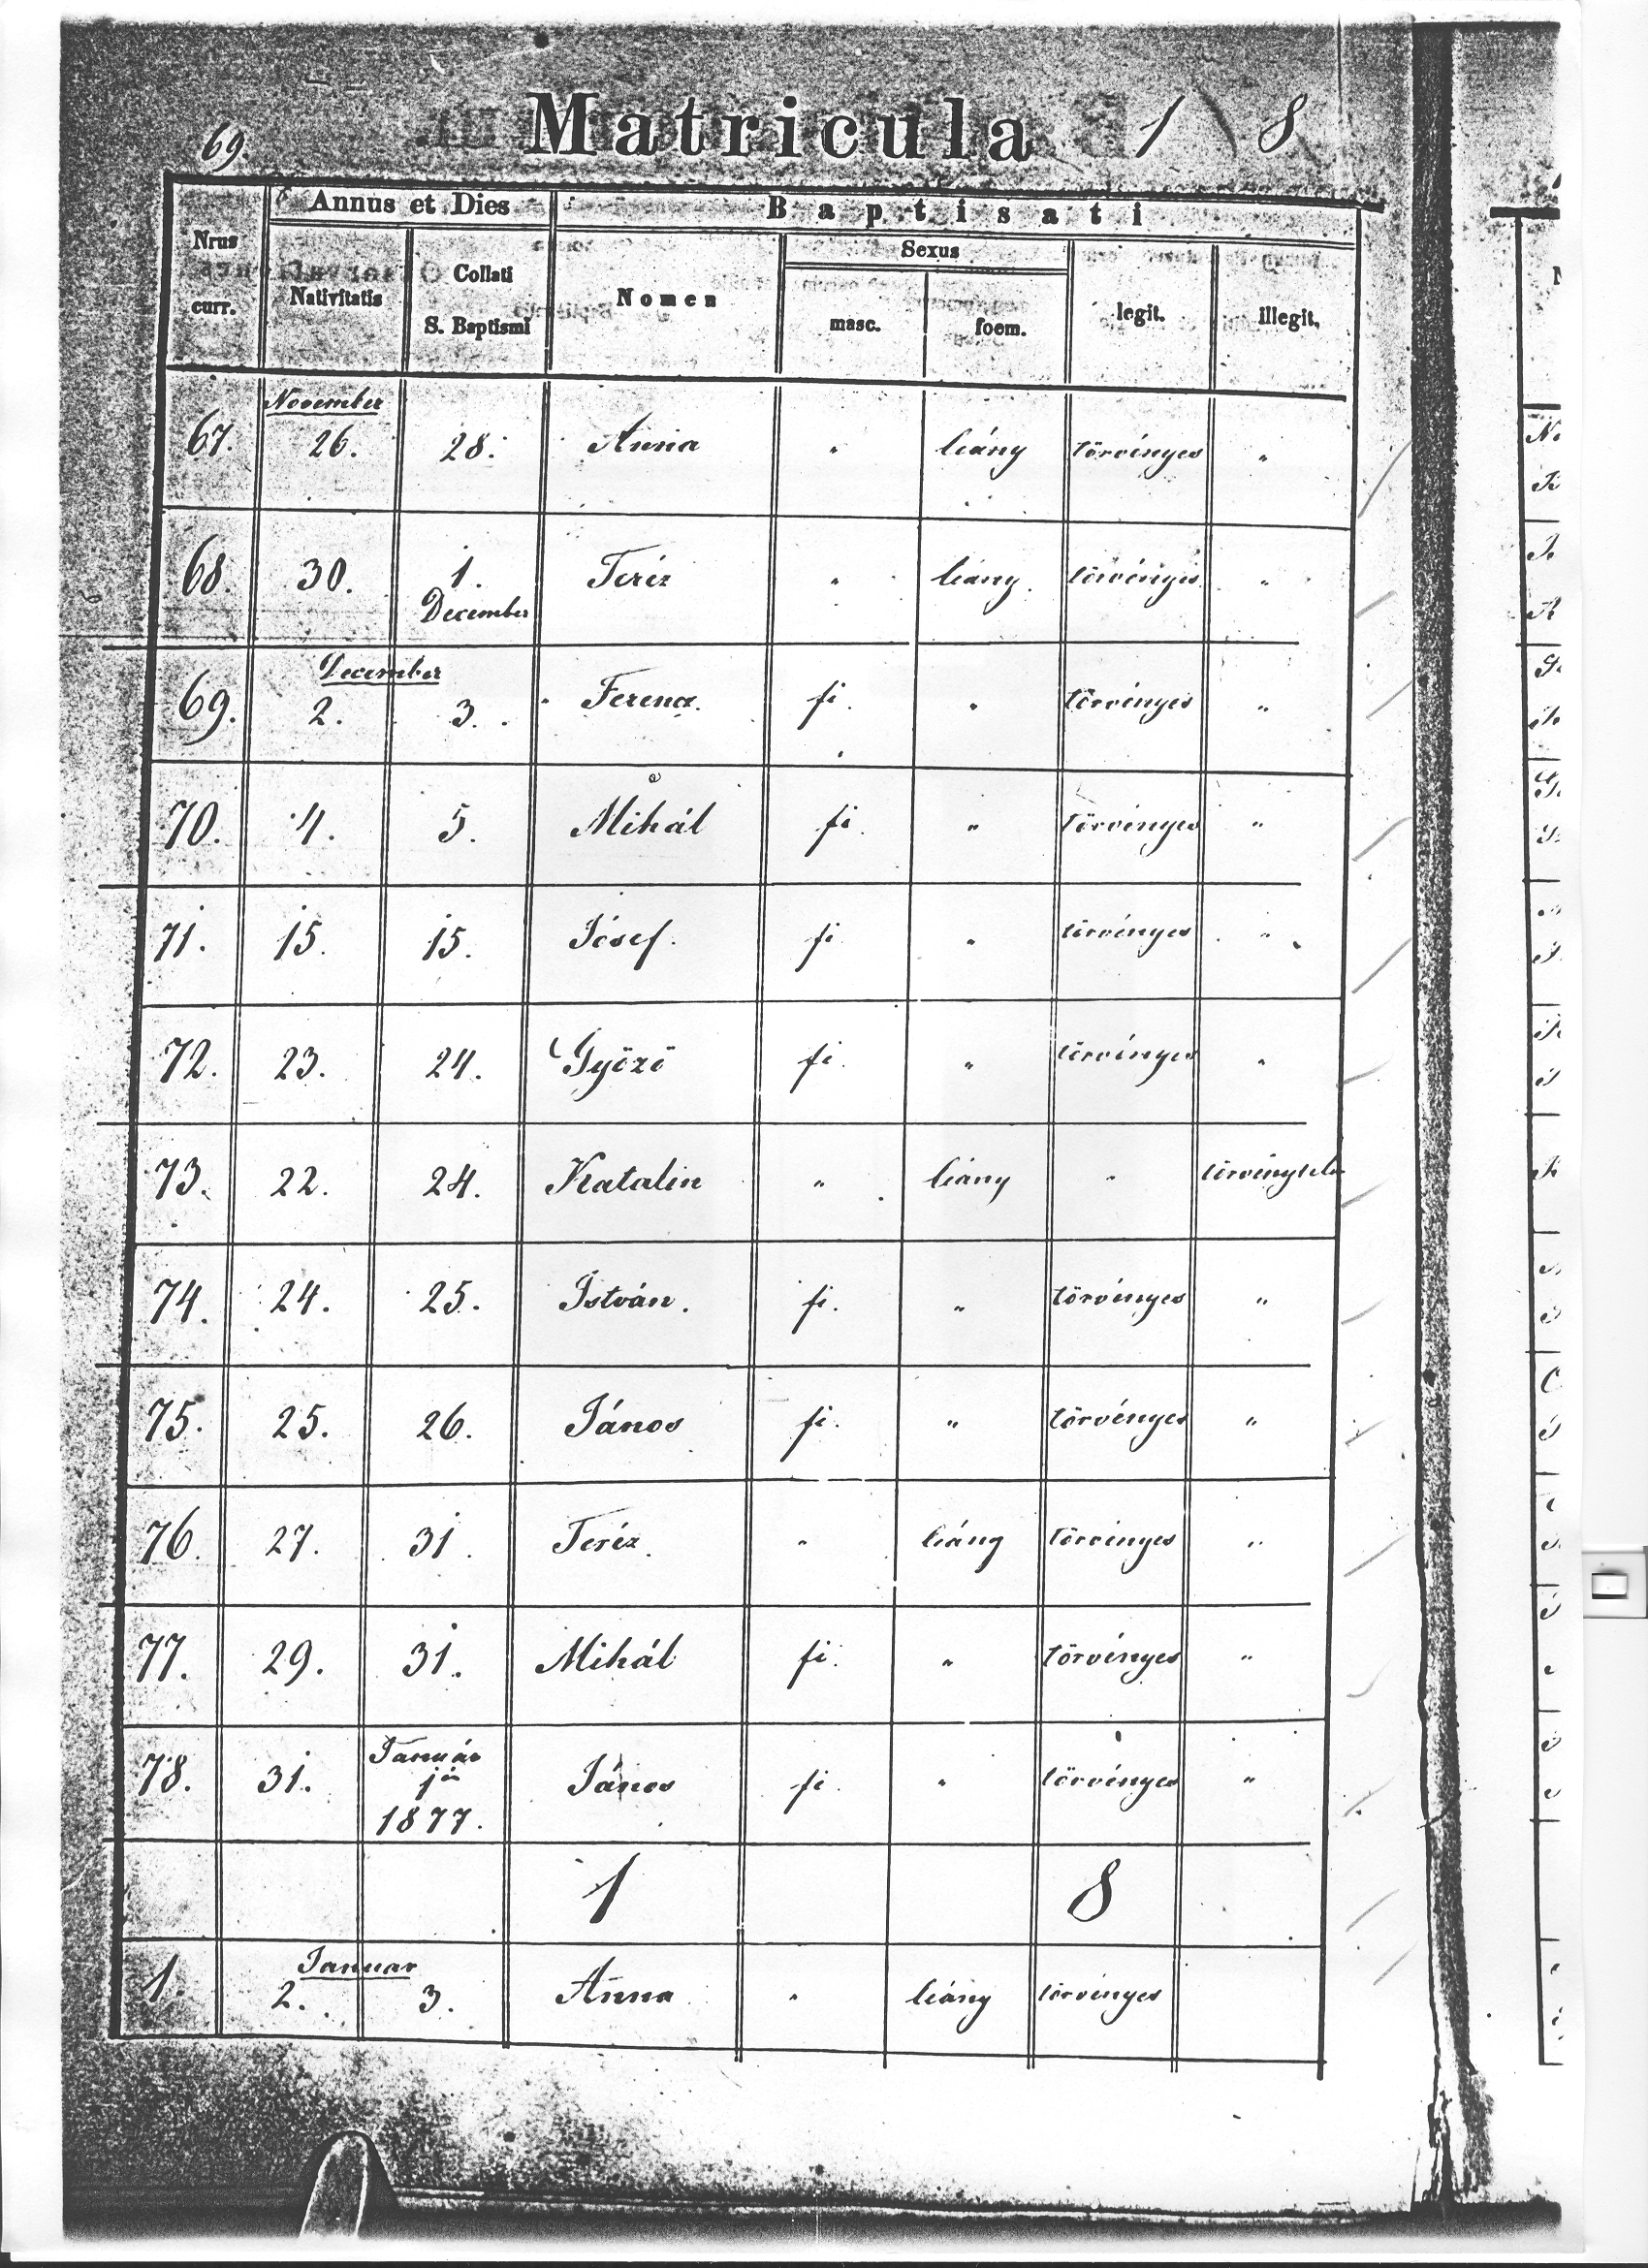 69. Matricula 1 8
Annus et Dies Baptisati
Nrus curr. Nativitatis Collati S. Baptismi Nomen Sexus masc. foem. legit. illegit.
November
67. 26. 28. Anna " leány törvényes "
68. 30. 1. Teréz " leány törvényes "
December
December
69. 2. 3. Ferencz fi " törvényes "
70. 4. 5. Mihál fi " törvényes "
71. 15. 15. Jósef fi " törvényes "
72. 23. 24. Győző fi " törvényes "
73. 22. 24. Katalin " leány " törvénytelen
74. 24. 25. István fi " törvényes "
75. 25. 26. János fi " törvényes "
76. 27. 31. Teréz " leány törvényes "
77. 29. 31. Mihál fi " törvényes "
Január
78. 31. 1én János fi " törvényes "
1877.
1 8
Januar
1. 2. 3. Anna " leány törvényes